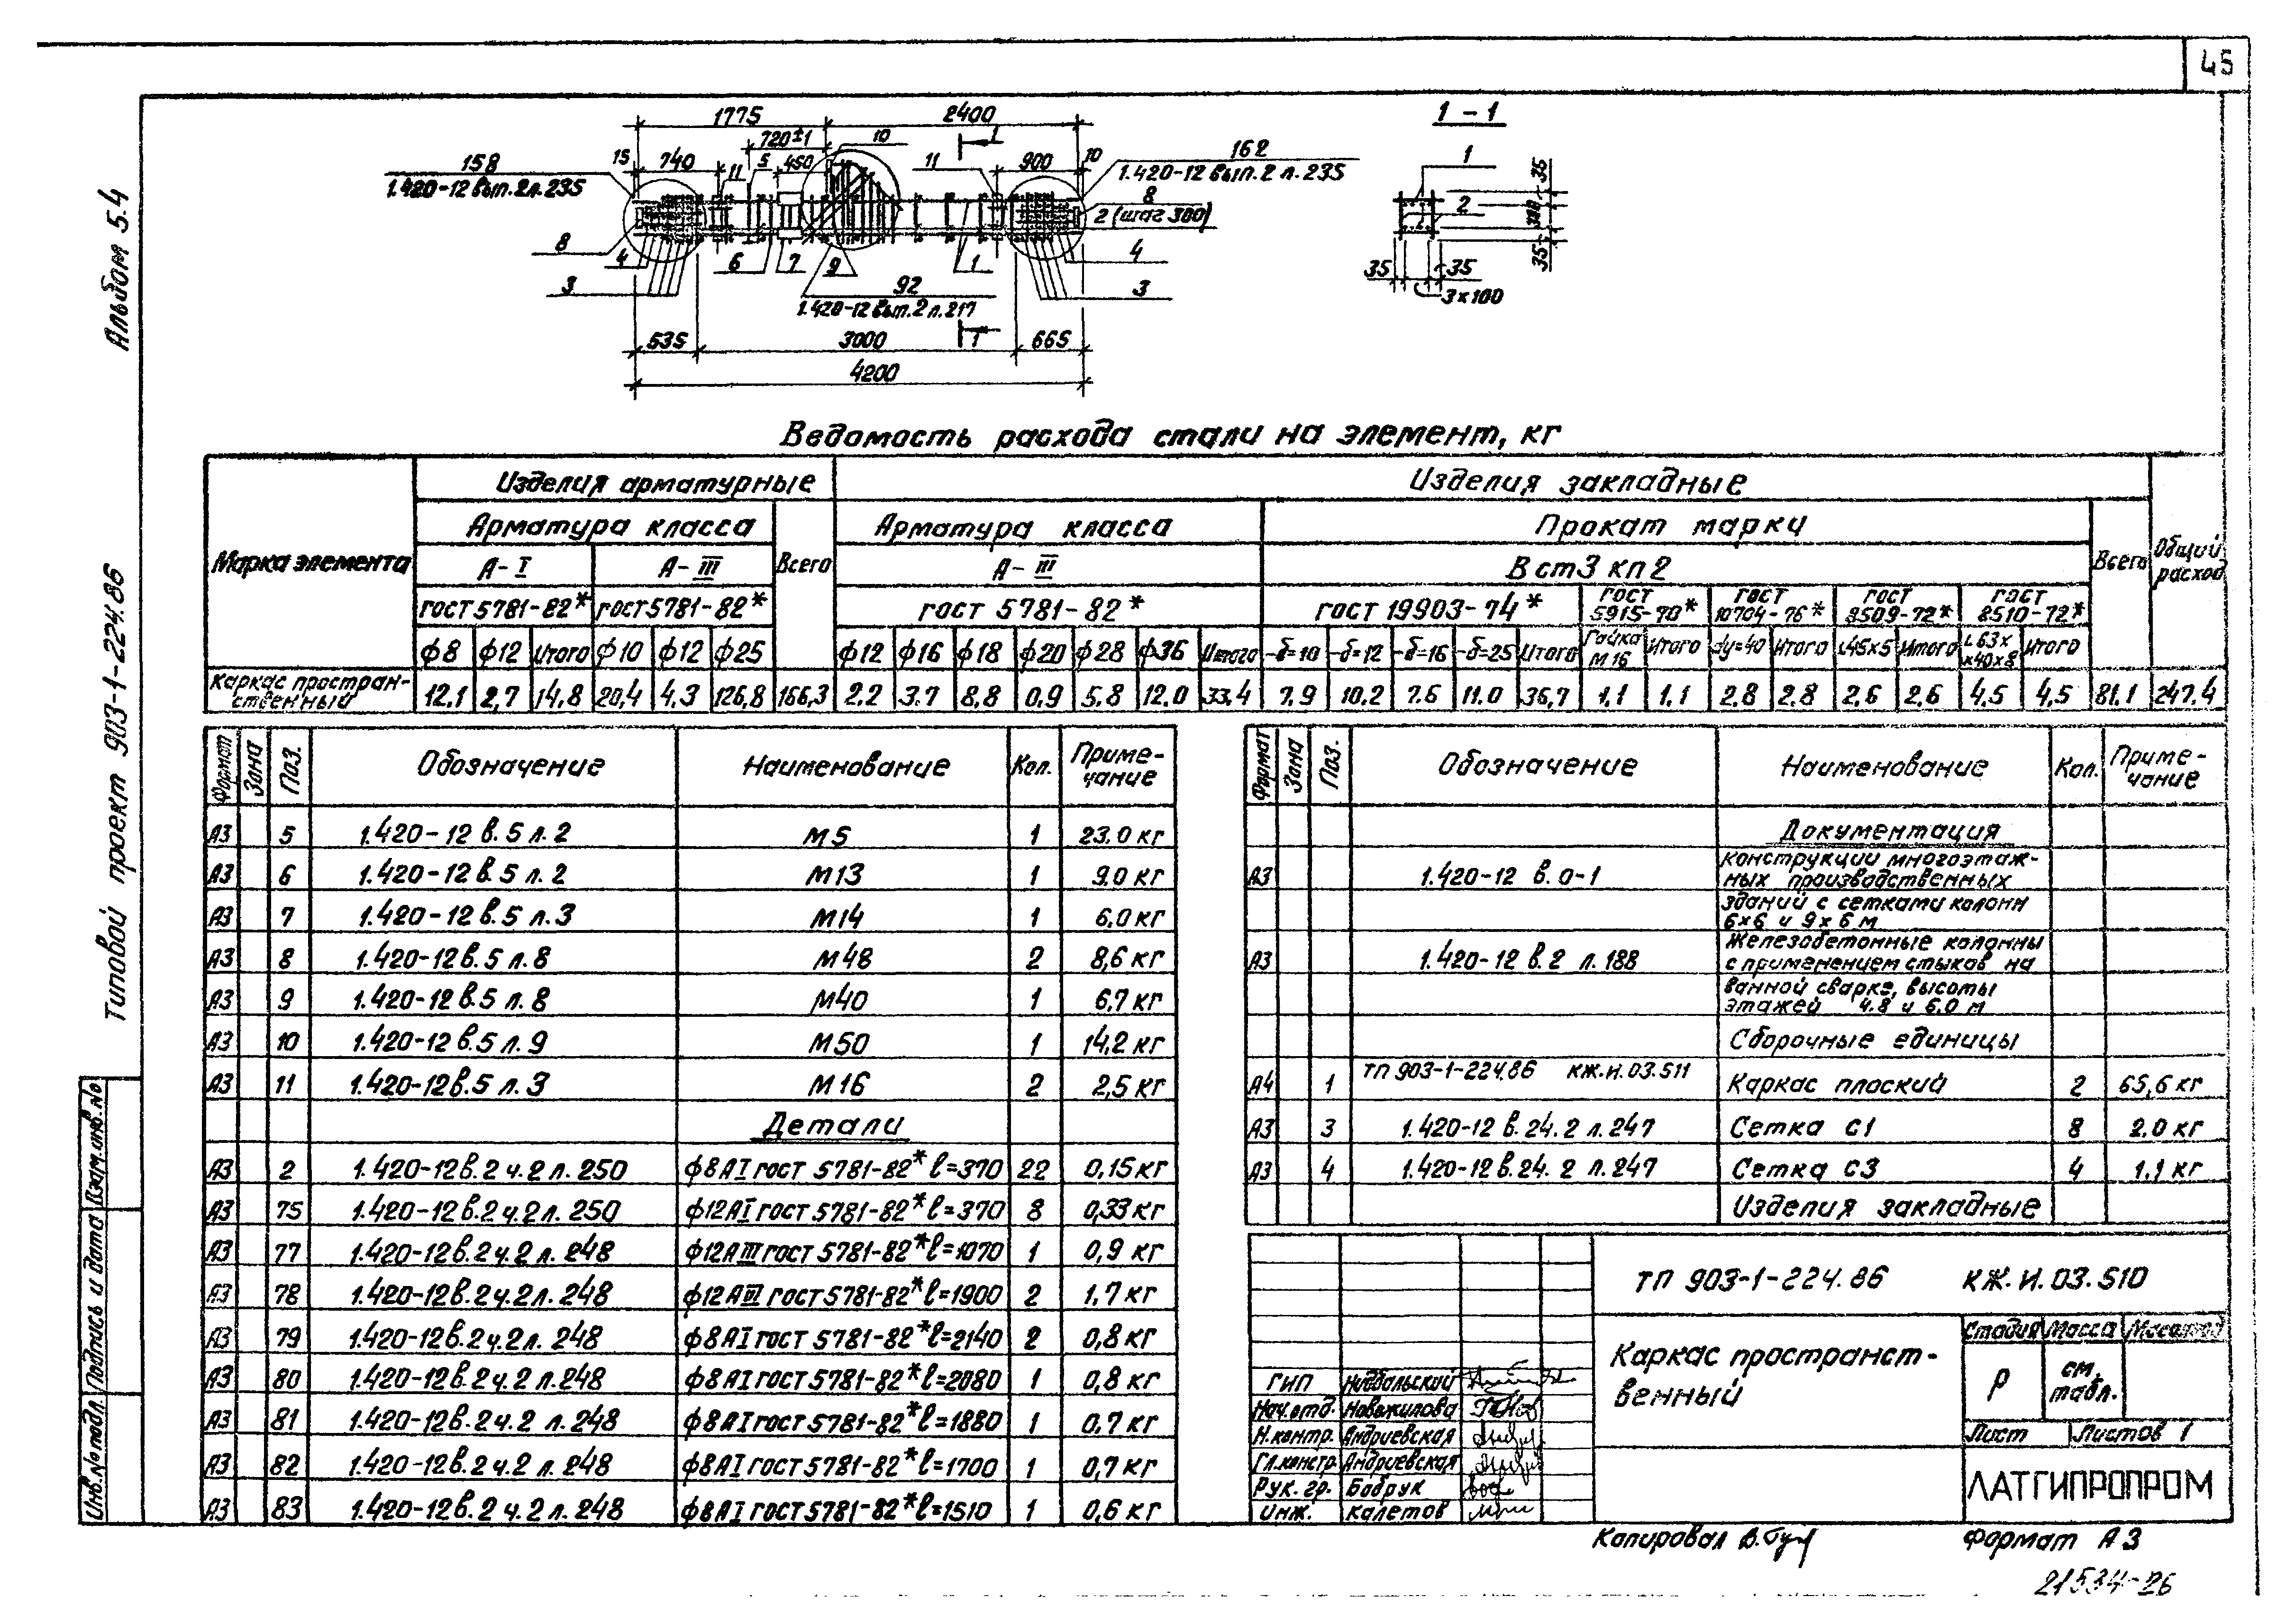 45
Альбом 5.4
Типовой проект 903-1-224.86
Инв.№ подл. Подпись и дата Взам.инв.№
1775 2400
720±1 10 1
15 740 11 5 450 11 900 10
158
1.420-12 вып.2 л.235
162
1.420-12 вып.2 л.235
8
2 (шаг 300)
8 4 6 7 9 1 4
3 3
92
1.420-12 вып.2 л.217
1
535 3000 665
4200
1-1
1
2
35
300
35
35 35
3х100
Ведомость расхода стали на элемент, кг
Марка элемента
Изделия арматурные Изделия закладные
Общий расход
Арматура класса Всего Арматура класса Прокат марки Всего
А-I А-III А-III Вст3 кп2
ГОСТ 5781-82* ГОСТ 5781-82* ГОСТ 5781-82* ГОСТ 19903-74* ГОСТ 5915-70* ГОСТ 10704-76* ГОСТ 8509-72* ГОСТ 8510-72*
ф8 ф12 Итого ф10 ф12 ф25 ф12 ф16 ф18 ф20 ф28 ф36 Итого -δ=10 -δ=12 -δ=16 -δ=25 Итого Гайка М16 Итого dy=40 Итого L45х5 Итого L63х х40х8 Итого
Каркас простран-
ственный
12,1 2,7 14,8 20,4 4,3 126,8 166,3 2.2 3.7 8.8 0.9 5.8 12.0 33.4 7.9 10.2 7.6 11.0 36,7 1,1 1.1 2.8 2.8 2.6 2.6 4,5 4,5 81.1 247.4
Формат Зона Поз. Обозначение Наименование Кол. Приме-
чание
А3 5 1.420-12 в.5 л.2 М5 1 23.0 кг
А3 6 1.420-12 в.5 л.2 М13 1 9.0 кг
А3 7 1.420-12 в.5 л.3 М14 1 6,0 кг
А3 8 1.420-12 в.5 л.8 М48 2 8,6 кг
А3 9 1.420-12 в.5 л.8 М40 1 6,7 кг
А3 10 1.420-12 в.5 л.9 М50 1 14,2 кг
А3 11 1.420-12 в.5 л.3 М16 2 2,5 кг
Детали
А3 2 1.420-12 в.2 ч.2 л.250 ф8 АI ГОСТ 5781-82* ℓ=370 22 0,15 кг
А3 75 1.420-12 в.2 ч.2 л.250 ф12 АI ГОСТ 5781-82* ℓ=370 8 0,33 кг
А3 77 1.420-12 в.2 ч.2 л.248 ф12 АIII ГОСТ 5781-82* ℓ=1070 1 0,9 кг
А3 78 1.420-12 в.2 ч.2 л.248 ф12 АIII ГОСТ 5781-82* ℓ=1900 2 1,7 кг
А3 79 1.420-12 в.2 ч.2 л.248 ф8 АI ГОСТ 5781-82* ℓ=2140 2 0,8 кг
А3 80 1.420-12 в.2 ч.2 л.248 ф8 АI ГОСТ 5781-82* ℓ=2080 1 0,8 кг
А3 81 1.420-12 в.2 ч.2 л.248 ф8 АI ГОСТ 5781-82* ℓ=1880 1 0,7 кг
А3 82 1.420-12 в.2 ч.2 л.248 ф8 АI ГОСТ 5781-82* ℓ=1700 1 0,7 кг
А3 83 1.420-12 в.2 ч.2 л.248 ф8 АI ГОСТ 5781-82* ℓ=1510 1 0,6 кг
Формат Зона Поз. Обозначение Наименование Кол. Приме-
чание
Документация
А3 1.420-12 в.0-1 Конструкции многоэтаж-
ных производственных
зданий с сетками колонн
6х6 и 9х6 м
А3 1.420-12 в.2 л.188 Железобетонные колонны
с применением стыков на
ванной сварке, высоты
этажей 4.8 и 6.0 м
Сборочные единицы
А4 1 ТП 903-1-224.86 КЖ.И.03.511 Каркас плоский 2 65,6 кг
А3 3 1.420-12 в.2ч.2 л.247 Сетка С1 8 2.0 кг
А3 4 1.420-12 в.2ч.2 л.247 Сетка С3 4 1.1 кг
Изделия закладные
ТП 903-1-224.86 КЖ.И.03.510
Каркас пространст-
венный
Стадия Масса Масштаб
Р см. табл.
Лист Листов 1
ЛАТГИПРОПРОМ
ГИП Нидбальский
Нач.отд. Новожилова
Н.контр. Андриевская
Гл.констр. Андриевская
Рук. гр. Бобрук
Инж. Калетов
Копировал Формат А3
21534-26